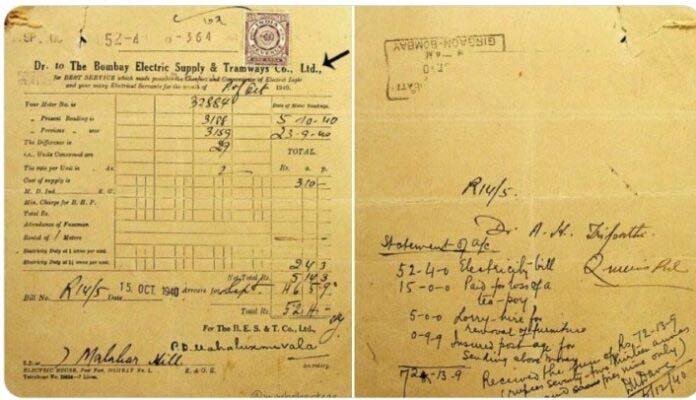 52-4 0-364
INDIA
REVENUE
Dr. to The Bombay Electric Supply & Tramways Co., Ltd.,
for BEST SERVICE which made possible the Comfort and Convenience of Electric Light
and your many Electrical Servants for the month of Oct 1940.
Your Meter No. is 32884 Date of Meter Readings.
„ Present Reading is 3188 5-10-40
„ Previous „ was 3159 23-9-40
The Difference is 29 TOTAL.
i.e., Units Consumed are
The rate per Unit is As. 2 Rs. a. p.
Cost of supply is 3 10 -
M. D. Ind. K. W.
Min. Charge for B. H. P.
Total Rs.
Attendance of Foreman
Rental of 1 Meters
Electricity Duty at
Electricity Duty at
2 4 3
Net Total Rs. 5 14 3
Bill No. R14/5 Date 15 OCT 1940 Arrears for Sept. 46 5 9
Total Rs. 52 4 -
For The B. E. S. & T. Co., Ltd.,
7 Malabar Hill
ELECTRIC HOUSE, BOMBAY No. 1. E. & O. E.
Telephone No. Lines.
GIRGAON-BOMBAY
R14/5.
Dr. A. H.
Statement of a/c
52-4-0 Electricity bill
15-0-0 Paid for loss of a
tea-poy
5-0-0 Lorry-hire for
removal of furniture
0-9-9 Insured postage for
sending above money
72-13-9
Received the sum of Rs. 72-13-9
(rupees seventy-two thirteen annas
and pies nine only)
/12/40